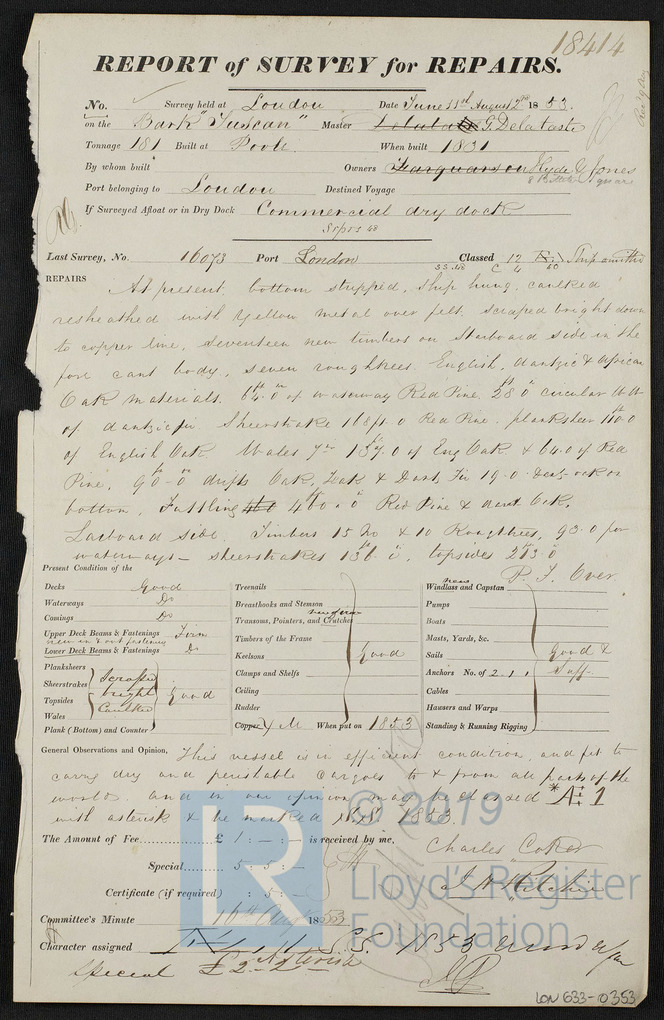 18414
REPORT of SURVEY for REPAIRS.
No. Survey held at London Date June 11th August 2nd 1853.
on the Bark "Tuscan" Master G. Delataste
Tonnage 181 Built at Poole When built 1831
By whom built Owners Farquarson Hyde & Jones
Port belonging to London Destined Voyage
If Surveyed Afloat or in Dry Dock Commercial dry dock
Last Survey, No. 16073 Port London Classed 12
REPAIRS At present bottom stripped, ship hung, caulked
resheathed with yellow metal over felt scraped bright down
to copper line, seventeen new timbers on Starboard side in the
fore cant body, seven roughtrees. English, dantzic & African
Oak materials. 64.0 of waterway Red Pine. 28.0 circular
of dantzic fir Sheerstrake 168ft.0 Red Pine. planksheer 110.0
of English Oak Wales 137.0 of Eng Oak & 64.0 of Red
Pine. drifts Oak, Teak & Dant, Fir 19.0
bottom, Futtling 460.0 Red Pine & dant Oak.
Larboard side. Timbers 15 No & 10 Roughtrees, 93.0 for
waterways - sheerstrakes 136.0, topsides 213.0
P. T. Over.
Present Condition of the
Decks Good
Waterways Do
Comings Do
Upper Deck Beams & Fastenings Firm
new in & out fastening
Lower Deck Beams & Fastenings Do
Planksheers
Sheerstrakes
Topsides
Wales
Plank (Bottom) and Counter
Scraped bright Caulked Good
Treenails
Breasthooks and Stemson
Transoms, Pointers, and Crutches
Timbers of the Frame
Keelsons Good
Clamps and Shelfs
Ceiling
Rudder
Copper Y M When put on 1853
new
Windlass and Capstan
Pumps
Boats
Masts, Yards, &c.
Sails Good &
Anchors No. of 2.1.1 Suff
Cables
Hawsers and Warps
Standing & Running Rigging
General Observations and Opinion, This vessel is in efficient condition, and fit to
carry dry and perishable Cargoes to & from all parts of the
world, and in our opinion may be classed * Æ 1
with asterisk & be marked 1853.
The Amount of Fee £ 1 : - : - is received by me,
Special 5 : 5 : -
Certificate (if required) : 5 : -
Charles Coker
J H Ritchie
Committee's Minute 16th Augt 1853
Character assigned Æ 1 S.S. 1853
Asterisk
Special £2 - 2 -
LON 633-0353
© 2019
LR
Lloyd's Register
Foundation